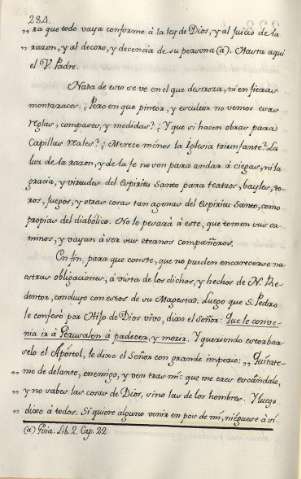 284.
„ ra que todo vaya conforme á la ley de Dios, y al juicio de la
„ razon, y al decoro, y decencia de su persona (a). Hasta aqui
el V. Padre.
Nada de esto se ve en el que destroza, ni en fieras
montaraces. ¿Pero en que pintor, y escultor no vemos esas
reglas, compases, y medidas? ¿Y que si hacen obras para
Capillas Reales? ¿Merece menos la Iglesia triunfante? La
luz de la razon, y de la fe no ven para andar á ciegas, ni la
gracia, y virtudes del Espiritu Santo para teatros, bayles, to-
ros, juegos, y otras cosas tan agenas del Espiritu Santo, como
propias del diabolico. No le pesará á este, que tomen sus ca-
minos, y vayan á ser sus eternos compañeros.
En fin, para que conste, que no pueden encarecerse nu-
estras obligaciones, á vista de los dichos, y hechos de N. Re-
dentor, concluyo con estos de su Magestad. Luego que S. Pedro
le confesó por Hijo de Dios vivo, dixo el señor: Que le conve-
nia ir á Jerusalén á padecer, y morir. Y queriendo estorbar-
selo el Apóstol, le dixo el Señor con grande imperio: „ Quitate-
„ me de delante, enemigo, y ven tras mi: que me eres escándalo,
„ y no sabes las cosas de Dios, sino las de los hombres. Y luego
„ dixo á todos. Si quiere alguno venir en pos de mi, nieguese á sí
(a) Guia. Lib. 2. Cap. 22.